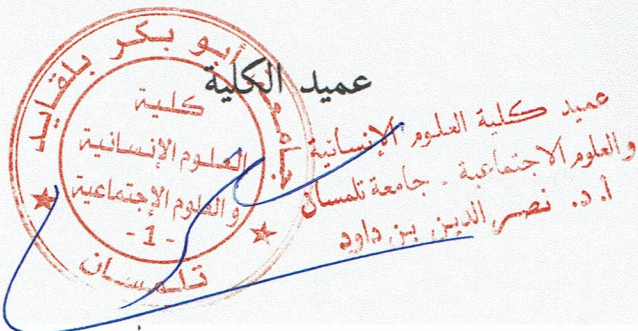 عميد الكلية
جامعة أبو بكر بلقايد
كلية
العلوم الإنسانية
و العلوم الإجتماعية
- 1 -
تلمسان
عميد كلية العلوم الإنسانية
والعلوم الاجتماعية - جامعة تلمسان
أ.د. نصر الدين بن داود